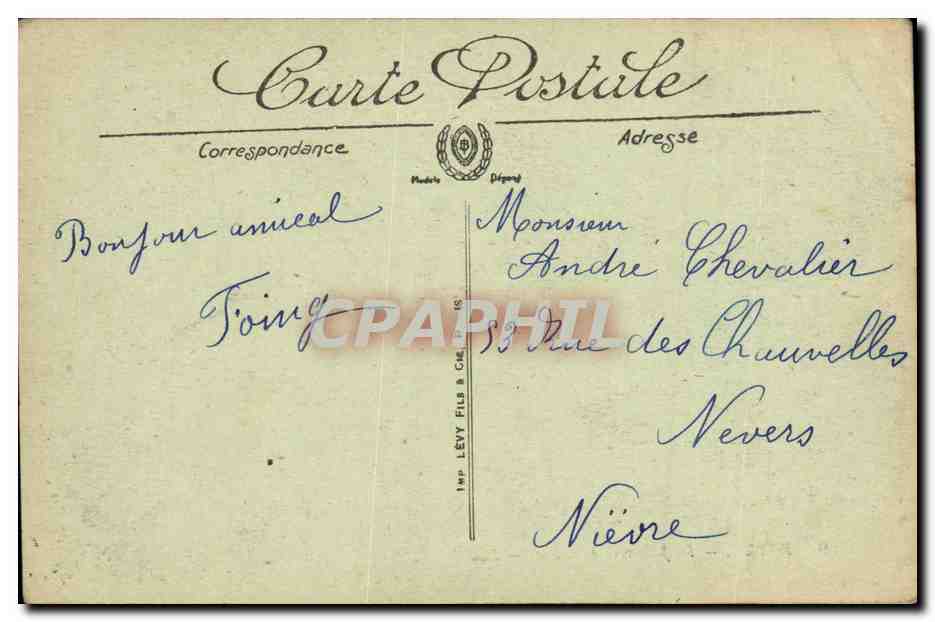 Carte Postale
Correspondance
Adresse
Modèle Déposé
Bonjour amical
Toing
Monsieur
André Chevalier
53 Rue des Chauvelles
Nevers
Nièvre
IMP LÉVY FILS & CIE,
CPAPHIL